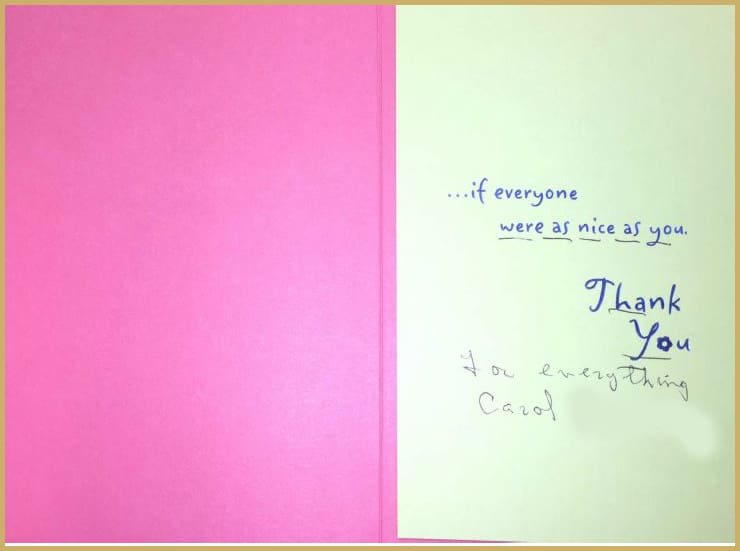 ...if everyone
were as nice as you.
Thank
You
For everything
Carol